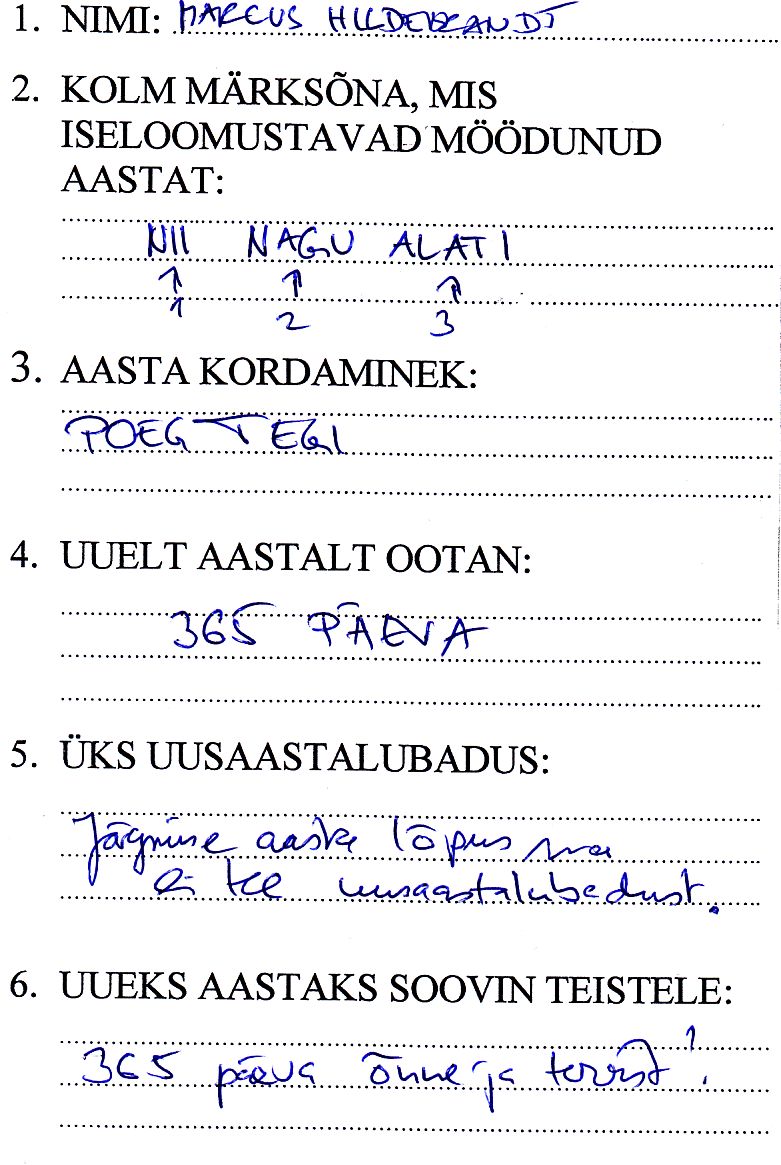 1. NIMI: MARCUS HILDEBRANDT
2. KOLM MÄRKSÕNA, MIS
ISELOOMUSTAVAD MÖÖDUNUD
AASTAT:
NII NAGU ALATI
1 2 3
3. AASTA KORDAMINEK:
POEG TEGI
4. UUELT AASTALT OOTAN:
365 PÄEVA
5. ÜKS UUSAASTALUBADUS:
Järgmise aasta lõpus ma
ei tee uusaastalubadust.
6. UUEKS AASTAKS SOOVIN TEISTELE:
365 päeva õnne ja tervist!